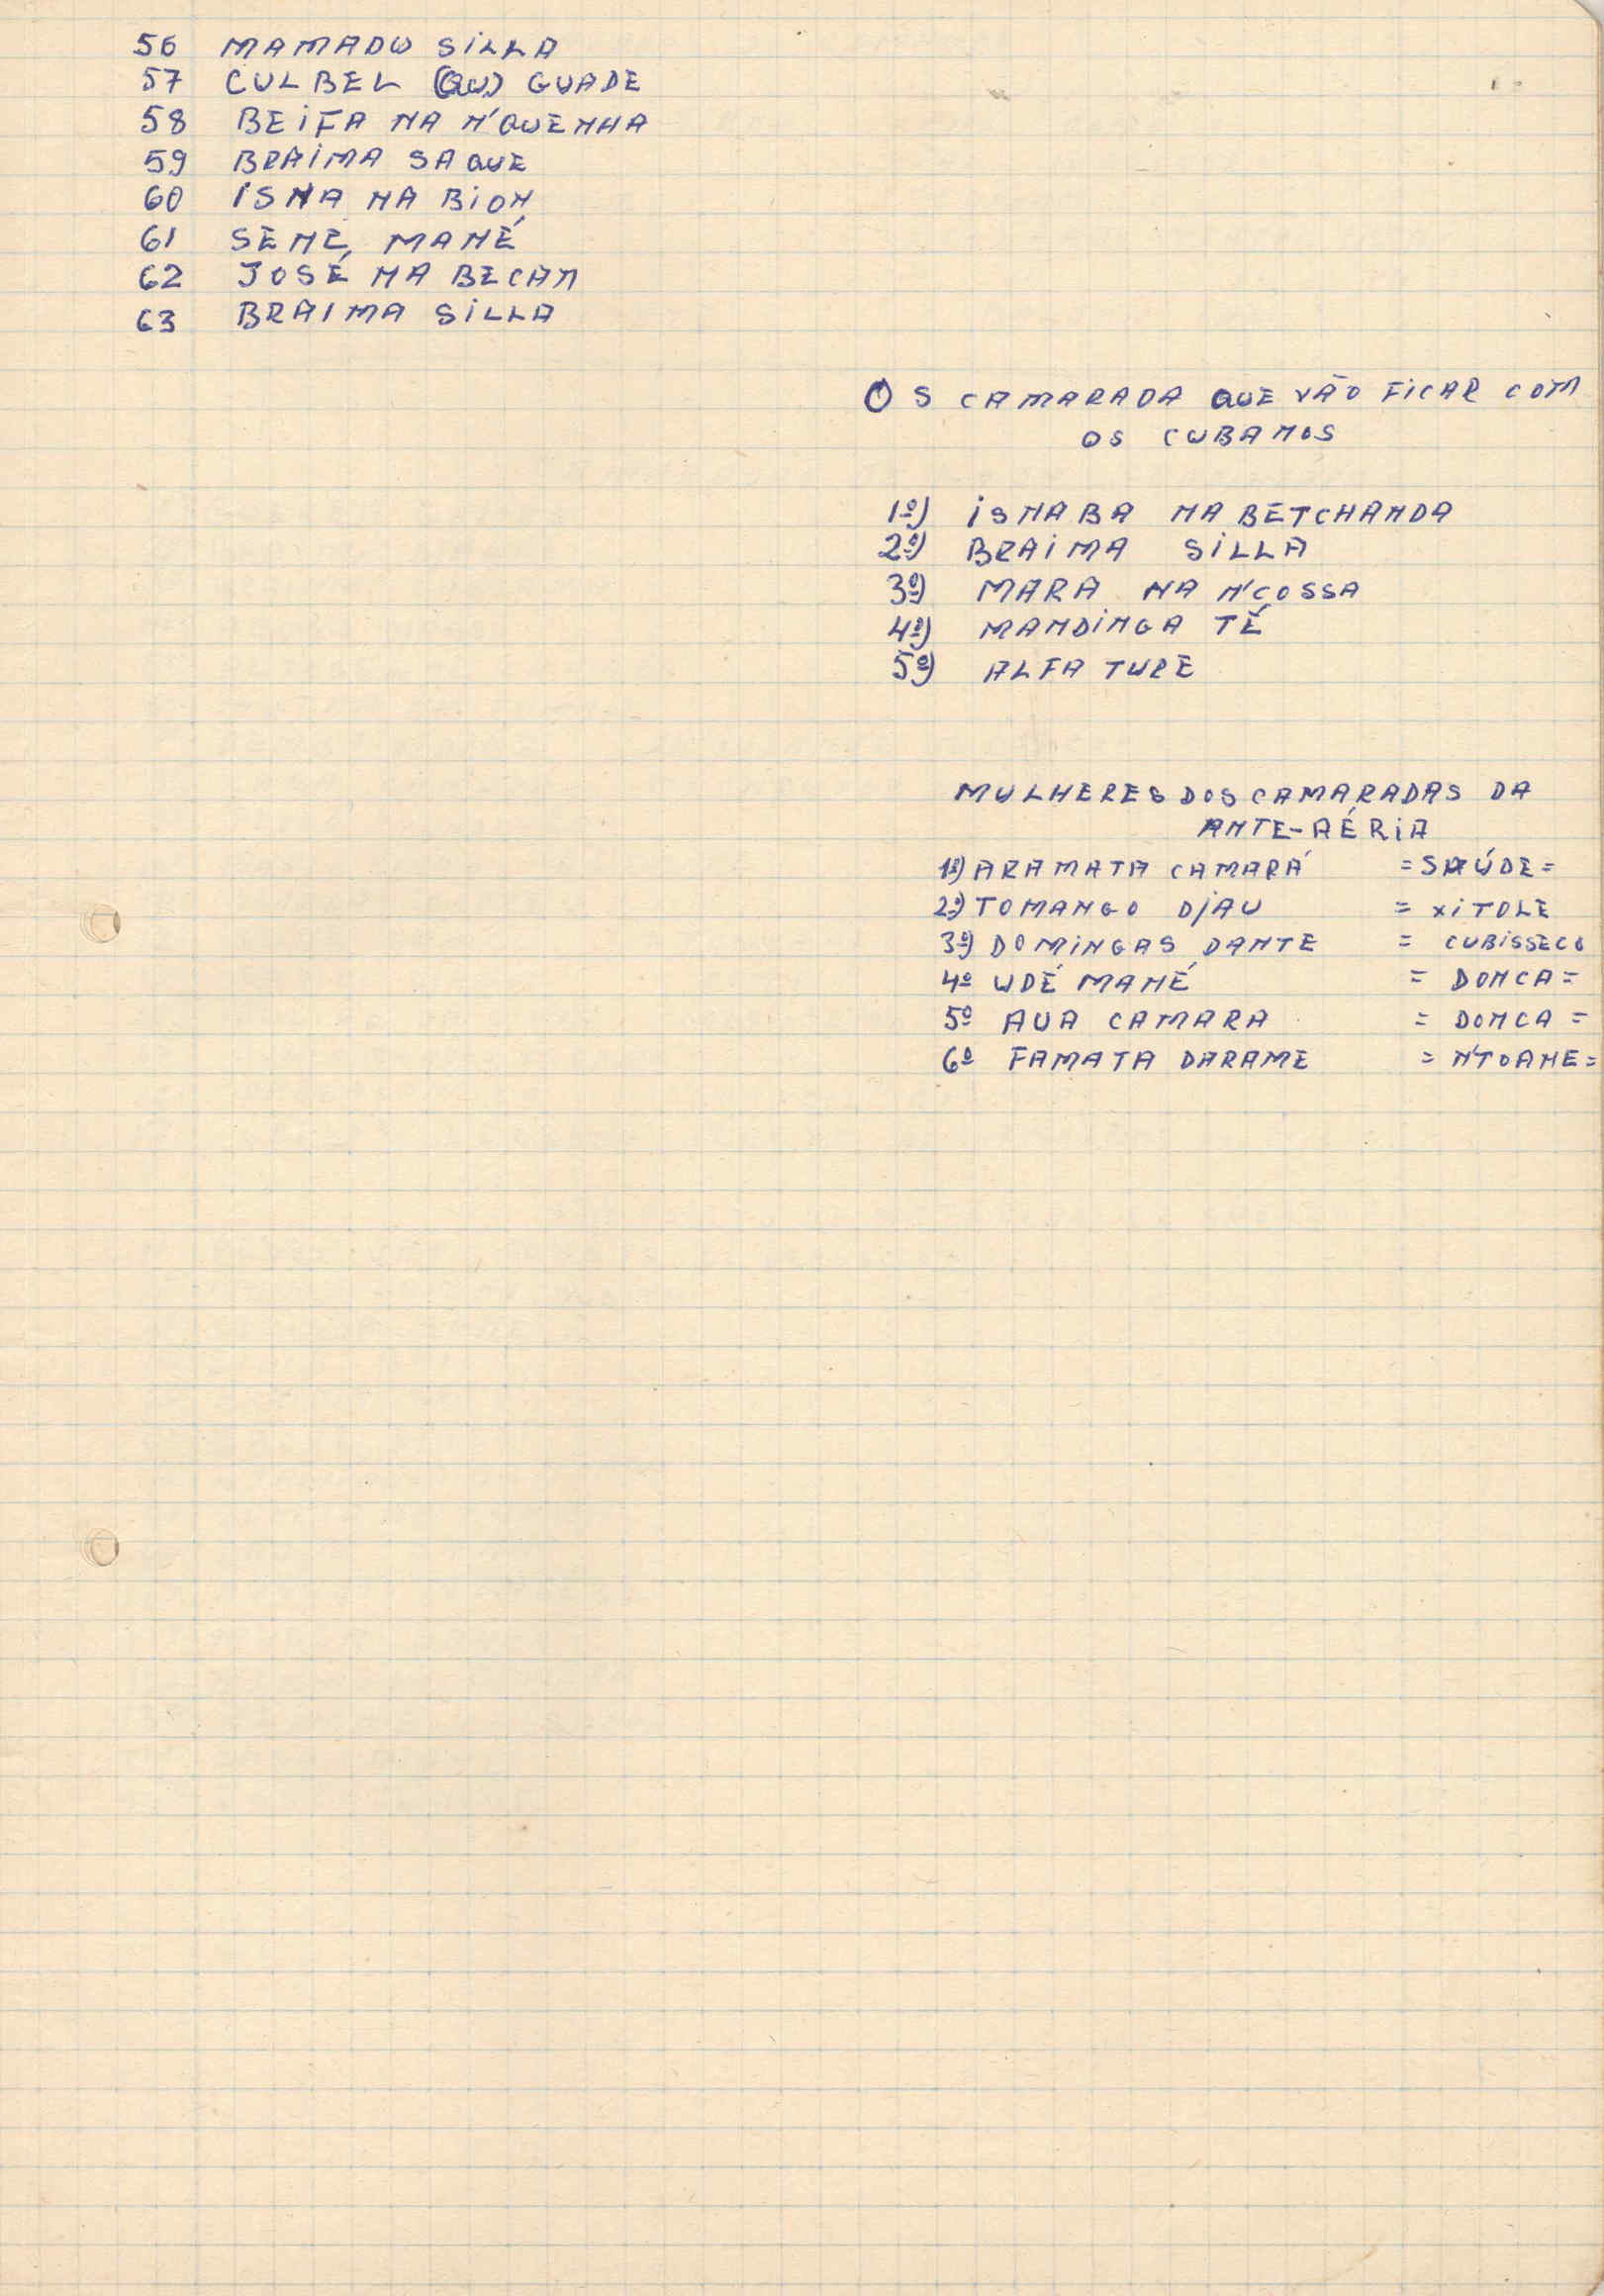 56 MAMADU SILLA
57 CULBEL (QU) GUADE
58 BEIFA NA N'QUENHA
59 BRAIMA SAQUE
60 ISNA NA BION
61 SENE MANÉ
62 JOSÉ NA BECAM
63 BRAIMA SILLA
OS CAMARADA QUE VÃO FICAR COM
OS CUBANOS
1º) ISNABA NA BETCHANDA
2º) BRAIMA SILLA
3º) MARA NA N'COSSA
4º) MANDINGA TÉ
5º) ALFA TURE
MULHERES DOS CAMARADAS DA
ANTE-AÉRIA
1º) ARAMATA CAMARÁ = SAÚDE =
2º) TOMANGO DJAU = XITOLE
3º) DOMINGAS DANTE = CUBISSECO
4º UDÉ MANÉ = DONCA =
5º AUA CAMARA = DONCA =
6º FAMATA DARAME = N'TOANE =